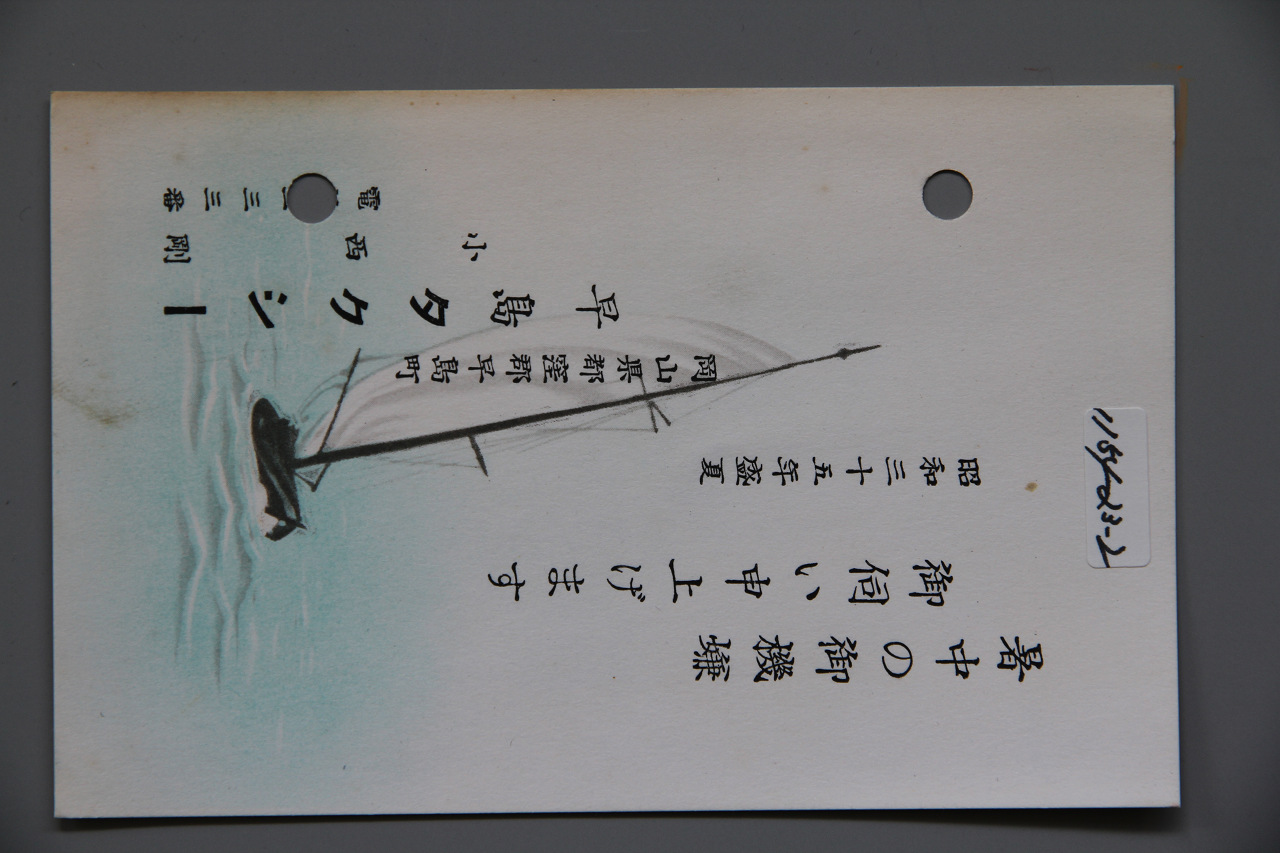 暑中の御機嫌
御伺い申上げます
昭和三十五年盛夏
岡山県都窪郡早島町
早島タクシー
小西剛
電 二三三番